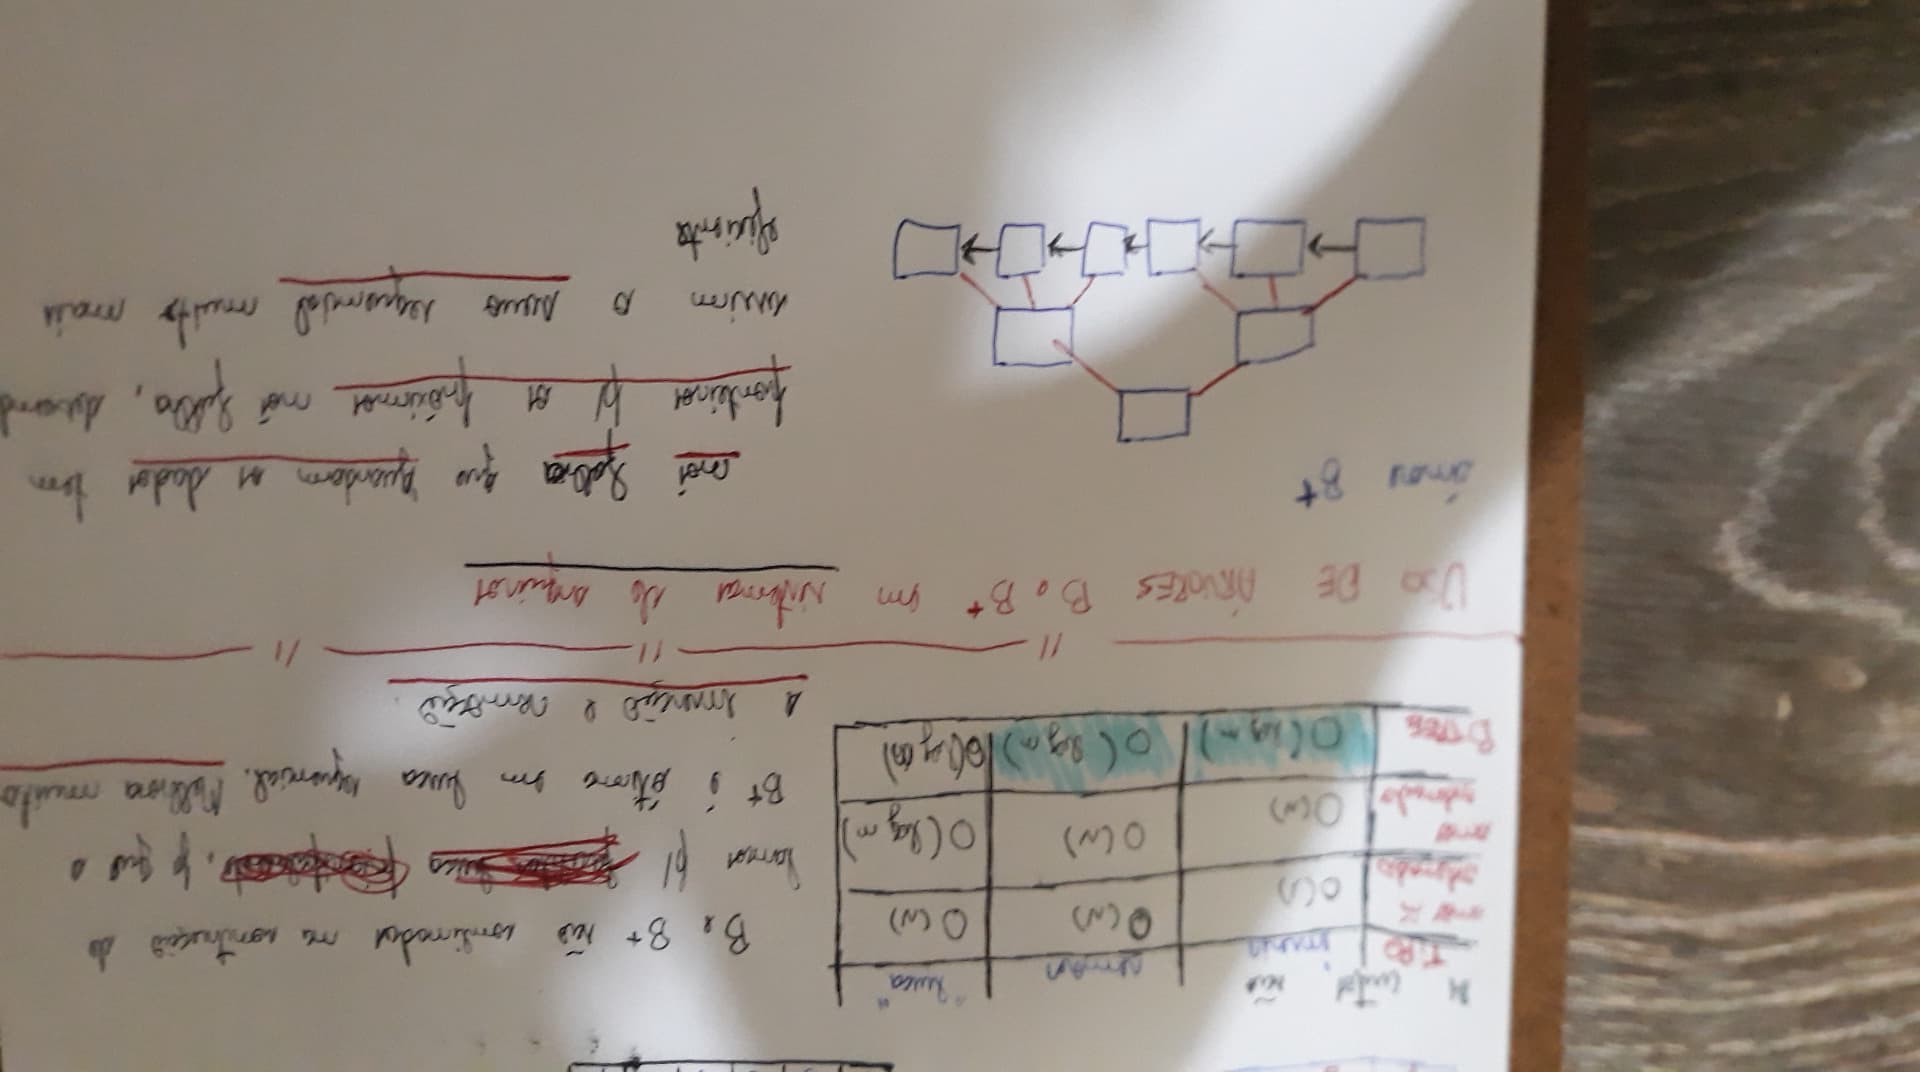 custos são
TIPO inserir remover "busca"
arr ñ ordenado O(1) O(N) O(N)
arr ordenado O(N) O(N) O(log n)
BTREE O(log n) O(log n) O(log n)
B e B+ são combinados na construção de
bancos p/ busca, p que a
B+ é ótima em busca sequencial. Melhora muito
a inserção e remoção.
USO DE ÁRVORES B e B+ em sistemas de arquivos
árvore B+
nós folha que guardam os dados tem
ponteiros p/ os próximos nós folha, deixando
assim o acesso sequencial muito mais
eficiente